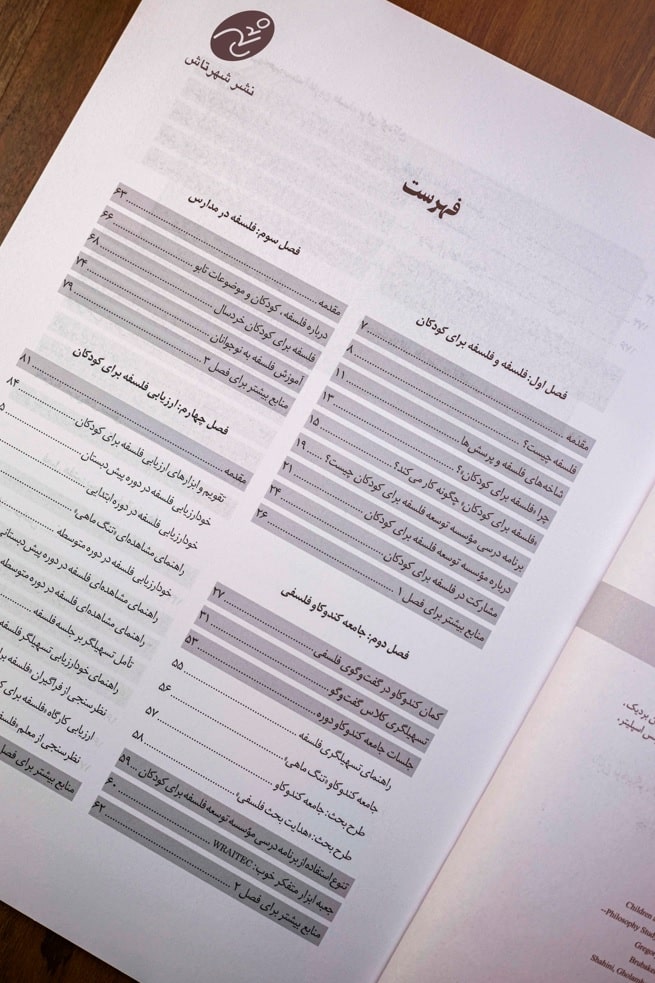 نشر شهرتاش
فهرست
فصل اول: فلسفه و فلسفه برای کودکان
مقدمه ... ۷
فلسفه چیست؟ ... ۸
شاخه‌های فلسفه و پرسش‌ها ... ۱۱
چرا «فلسفه برای کودکان»؟ ... ۱۳
«فلسفه برای کودکان» چگونه کار می‌کند؟ ... ۱۵
برنامه درسی مؤسسه توسعه فلسفه برای کودکان چیست؟ ... ۱۹
درباره مؤسسه توسعه فلسفه برای کودکان ... ۲۱
مشارکت در فلسفه برای کودکان ... ۲۴
منابع بیشتر برای فصل ۱ ... ۲۶
فصل دوم: جامعه کندوکاو فلسفی
کمان کندوکاو در گفت‌وگوی فلسفی ... ۲۷
تسهیلگری کلاس گفت‌وگو ... ۳۱
جلسات جامعه کندوکاو دوره ... ۵۳
راهنمای تسهیلگری فلسفه ... ۵۵
جامعه کندوکاو «تنگ ماهی» ... ۵۶
طرح بحث: جامعه کندوکاو ... ۵۷
طرح بحث: «هدایت بحث فلسفی» ... ۵۸
تنوع استفاده از برنامه درسی مؤسسه توسعه فلسفه برای کودکان ... ۵۹
جعبه ابزار متفکر خوب: WRAITEC ... ۶۰
منابع بیشتر برای فصل ۲ ... ۶۲
فصل سوم: فلسفه در مدارس
مقدمه ... ۶۳
درباره فلسفه، کودکان و موضوعات تابو ... ۶۶
فلسفه برای کودکان خردسال ... ۶۸
آموزش فلسفه به نوجوانان ... ۷۴
منابع بیشتر برای فصل ۳ ... ۷۹
فصل چهارم: ارزیابی فلسفه برای کودکان
مقدمه ... ۸۱
تقویم و ابزارهای ارزیابی فلسفه برای کودکان ... ۸۴
خودارزیابی فلسفه در دوره پیش‌دبستان
خودارزیابی فلسفه در دوره ابتدایی
راهنمای مشاهده‌ای «تنگ ماهی»
خودارزیابی فلسفه در دوره متوسطه
راهنمای مشاهده‌ای فلسفه در دوره پیش‌دبستانی
راهنمای مشاهده‌ای فلسفه در دوره متوسطه
تأمل تسهیلگر بر جلسه فلسفه
راهنمای خودارزیابی تسهیلگر فلسفه
نظرسنجی از فراگیران «فلسفه
ارزیابی کارگاه «فلسفه برای
نظرسنجی از معلم «فلسفه
منابع بیشتر برای فصل
Children
Philosophy Study
Gregor
Shahini, Gholamh